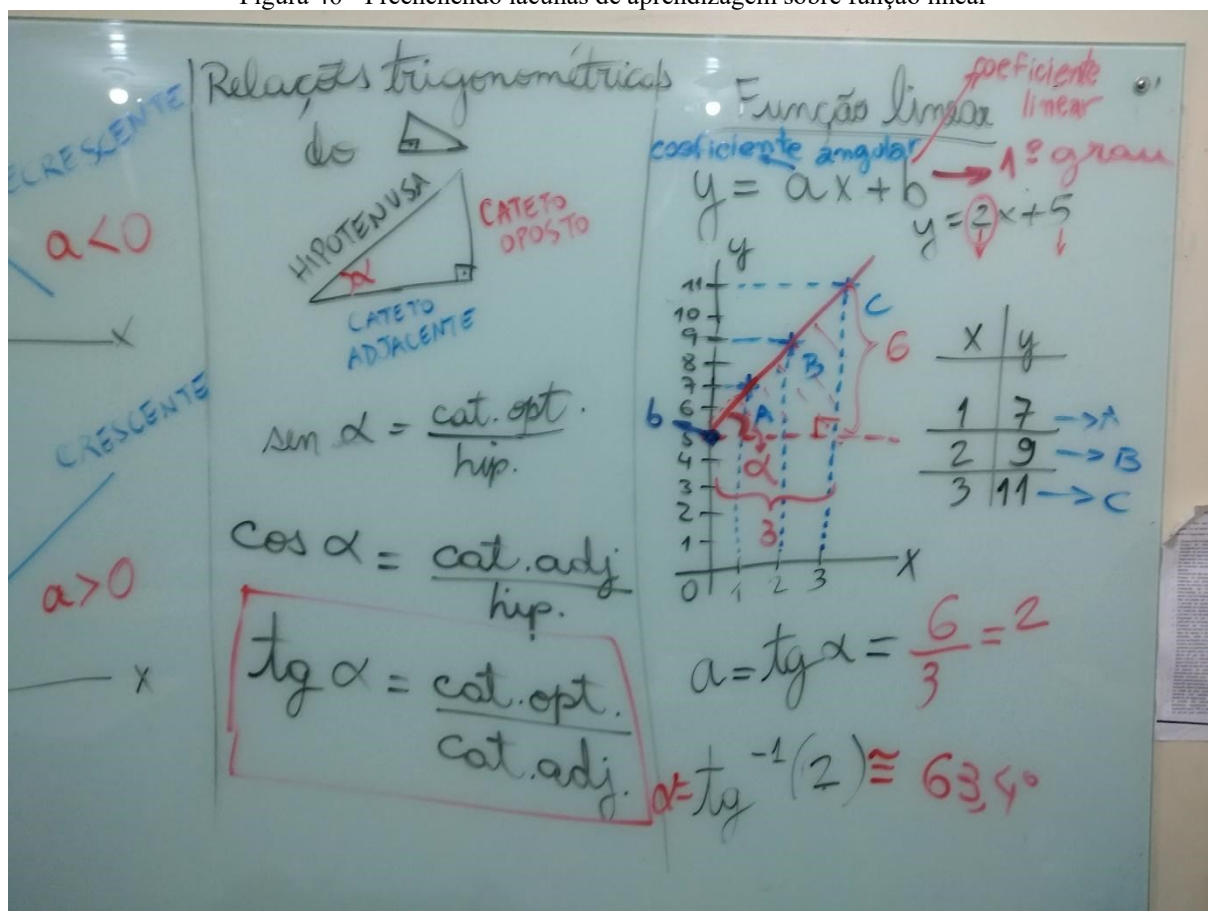 Figura 46 - Preenchendo lacunas de aprendizagem sobre função linear
ECRESCENTE
a<0
X
CRESCENTE
a>0
X
Relações trigonométricas
do
HIPOTENUSA
CATETO
OPOSTO
α
CATETO
ADJACENTE
sen α = cat.opt.
hip.
cos α = cat.adj
hip.
tg α = cat.opt.
cat.adj.
Função linear
coeficiente
linear
coeficiente angular
y = ax + b → 1º grau
y = 2x + 5
y
11
10
9
8
7
6
5
4
3
2
1
0 1 2 3 X
b
A
B
C
α
6
3
X | y
1 | 7 --> A
2 | 9 --> B
3 | 11 --> C
a = tg α = 6/3 = 2
α = tg⁻¹(2) ≅ 63,4°